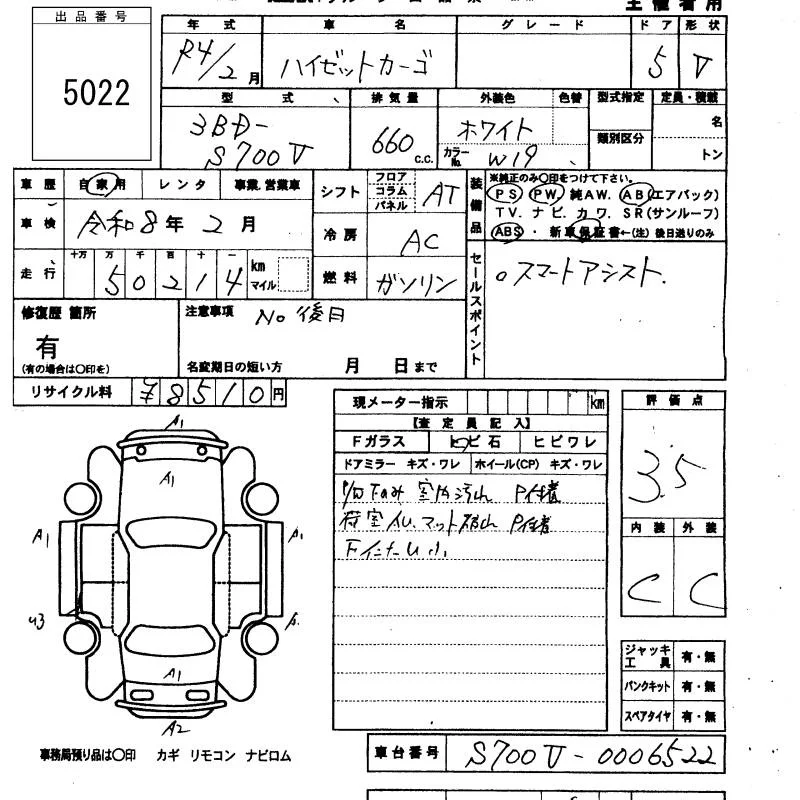 主催者用
出品番号
5022
年式 車名 グレード ドア 形状
R4/2月 ハイゼットカーゴ 5 V
型式 排気量 外装色 色替 型式指定 定員・積載
3BD-
S700V 660 c.c. ホワイト 類別区分 名
カラーNo. W19 トン
車歴 自家用 レンタ 事業.営業車
車検 令和8年2月
走行 十万 万 千 百 十 一
50214 km マイル
シフト フロア コラム パネル AT
冷房 AC
燃料 ガソリン
装備品 ※純正のみ〇印をつけて下さい。
PS PW. 純AW. AB(エアバック)
TV. ナビ. カワ. SR(サンルーフ)
ABS ・ 新車保証書←(注) 後日送りのみ
セールスポイント
○スマートアシスト.
修復歴 箇所
有
(有の場合は〇印を)
注意事項 No 後日
名変期日の短い方 月 日まで
リサイクル料 ¥8510円
現メーター指示 km
【査定員記入】
Fガラス トビ石 ヒビワレ
ドアミラー キズ・ワレ ホイール(CP) キズ・ワレ
室内汚れ P付着
荷室 マット破れ P付着
評価点
3.5
内装 外装
C C
A1
A1
A1
A1
U3
A.
A1
A2
ジャッキ 工具 有・無
パンクキット 有・無
スペアタイヤ 有・無
事務局預り品は〇印 カギ リモコン ナビロム
車台番号 S700V-0006522